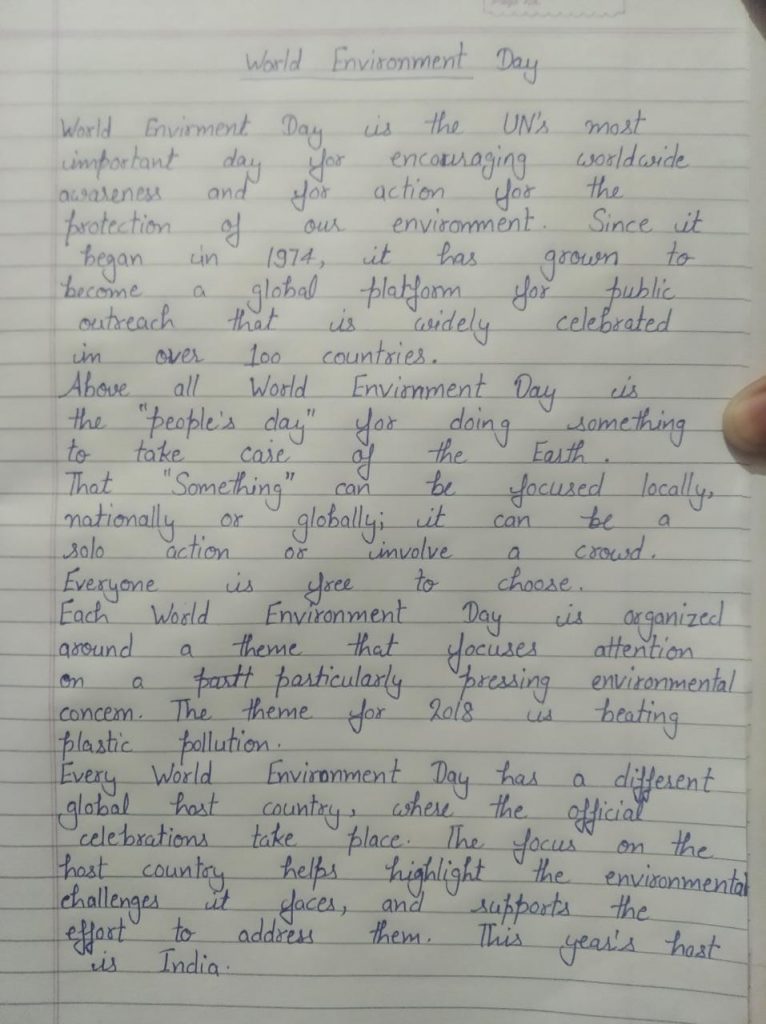 World Environment Day
World Envirment Day is the UN's most
important day for encouraging worldwide
awareness and for action for the
protection of our environment. Since it
began in 1974, it has grown to
become a global platform for public
outreach that is widely celebrated
in over 100 countries.
Above all World Environment Day is
the "people's day" for doing something
to take care of the Earth.
That "Something" can be focused locally,
nationally or globally; it can be a
solo action or involve a crowd.
Everyone is free to choose.
Each World Environment Day is organized
around a theme that focuses attention
on a partt particularly pressing environmental
concern. The theme for 2018 is beating
plastic pollution.
Every World Environment Day has a different
global host country, where the official
celebrations take place. The focus on the
host country helps highlight the environmental
challenges it faces, and supports the
effort to address them. This year's host
is India.